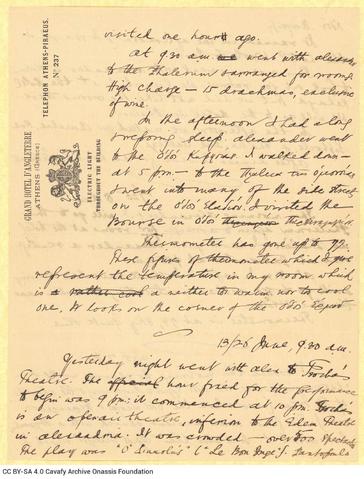 TELEPHON ATHENS-PIRAEUS.
Nº 237
GRAND HOTEL D'ANGLETERRE
ATHENS (Greece)
ELECTRIC LIGHT
THROUGHOUT THE BUILDING
visited one hour ago.
At 9.30 a.m. went with Alexander
to the Phalerum & arranged for rooms.
High charge — 15 drachmas, exclusive
of wine.
In the afternoon I had a long
& refreshing sleep. Alexander went
to the Odós Kifissias. I walked down —
at 5 p.m. — to the
& went into many of the side streets
on the Odós Stadíou. I visited the
Bourse in Odós
Thermometer has gone up to 79.
These figures of thermometer which I give
represent the temperature in my room which
is a rather cool a neither too warm nor too cool
one. It looks on the corner of the Odós
13/26 June, 9.30 a.m.
Yesterday night went with Alex. to
Theatre. The official hour fixed for the performance
to begin was 9 p.m: it commenced at 10 p.m.
is an open air theatre, inferior to the Eden Theatre
in Alexandria. It was crowded — over 500
The play was "Ὁ ("Le Bon Juge").
CC BY-SA 4.0 Cavafy Archive Onassis Foundation